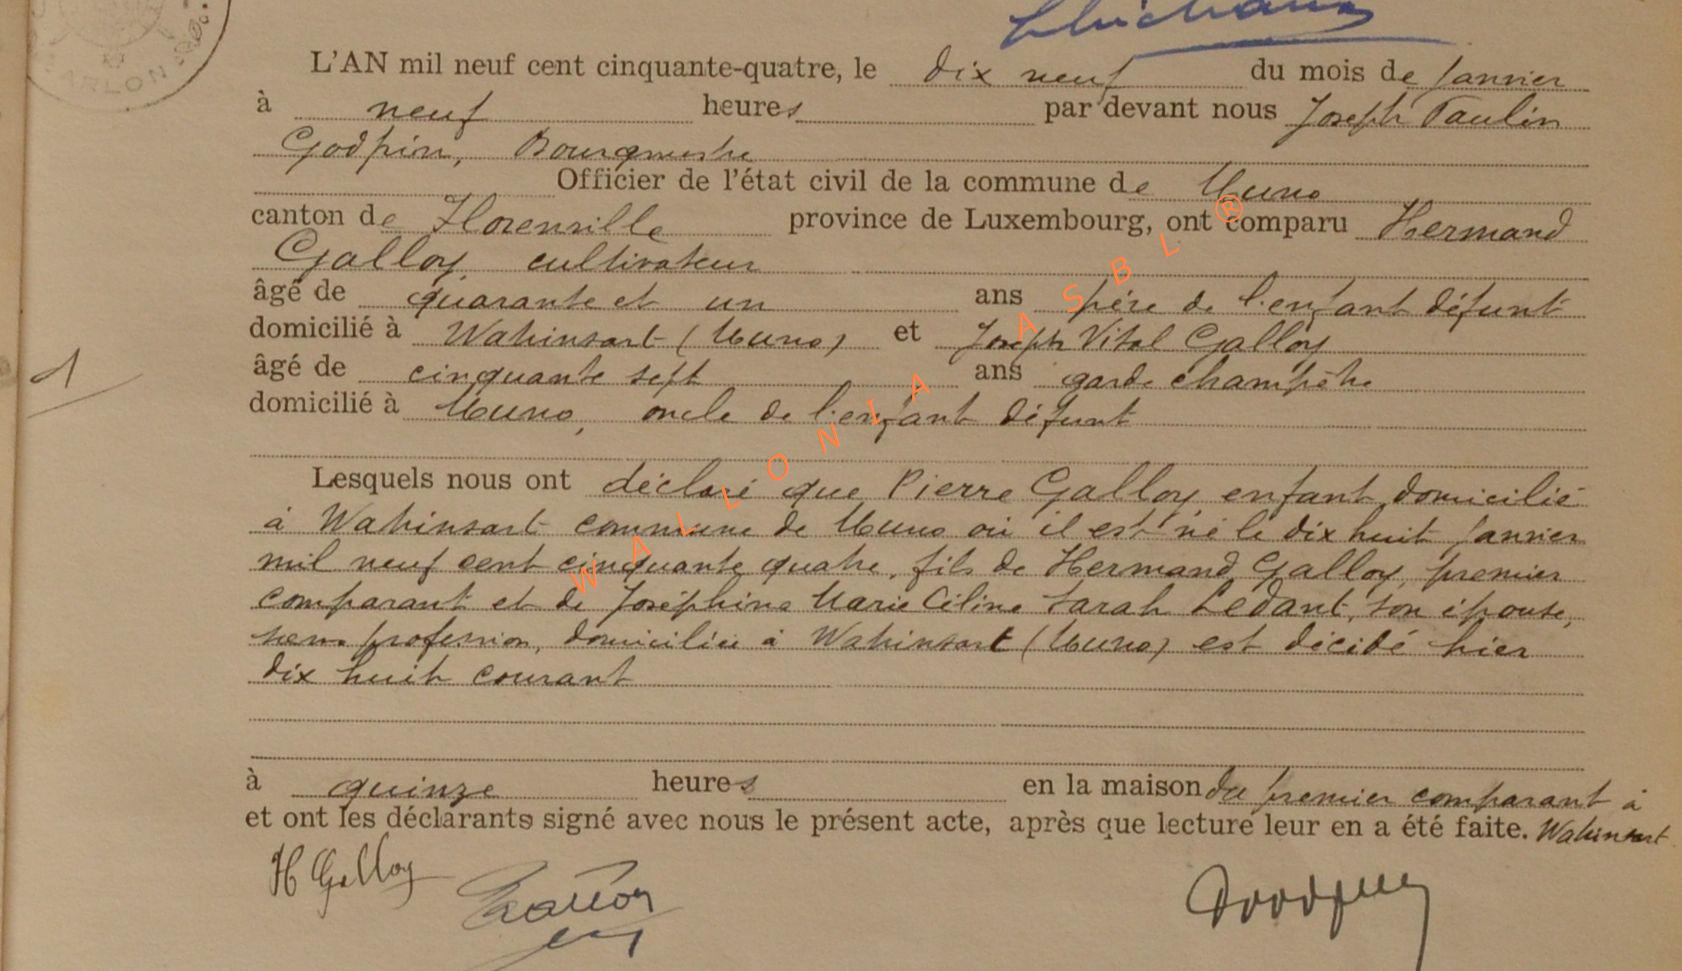 ARLON
L'AN mil neuf cent cinquante-quatre, le dix neuf du mois de Janvier
à neuf heures par devant nous Joseph Paulin
Godfrin, Bourgmestre
Officier de l'état civil de la commune de Muno
canton de Florenville province de Luxembourg, ont comparu Hermand
Galloy cultivateur
âgé de quarante et un ans père de l'enfant défunt
domicilié à Watrinsart (Muno) et Joseph Vital Galloy
âgé de cinquante sept ans garde champêtre
domicilié à Muno, oncle de l'enfant défunt
1
Lesquels nous ont déclaré que Pierre Galloy enfant domicilié
à Watrinsart commune de Muno où il est né le dix huit Janvier
mil neuf cent cinquante quatre, fils de Hermand Galloy, premier
comparant et de Joséphine Marie Céline Sarah Ledant, son épouse,
sans profession, domiciliée à Watrinsart (Muno) est décédé hier
dix huit courant
à quinze heures en la maison du premier comparant à
et ont les déclarants signé avec nous le présent acte, après que lecture leur en a été faite. Watrinsart
H Galloy
Galloy
WALLONIA ASBL®